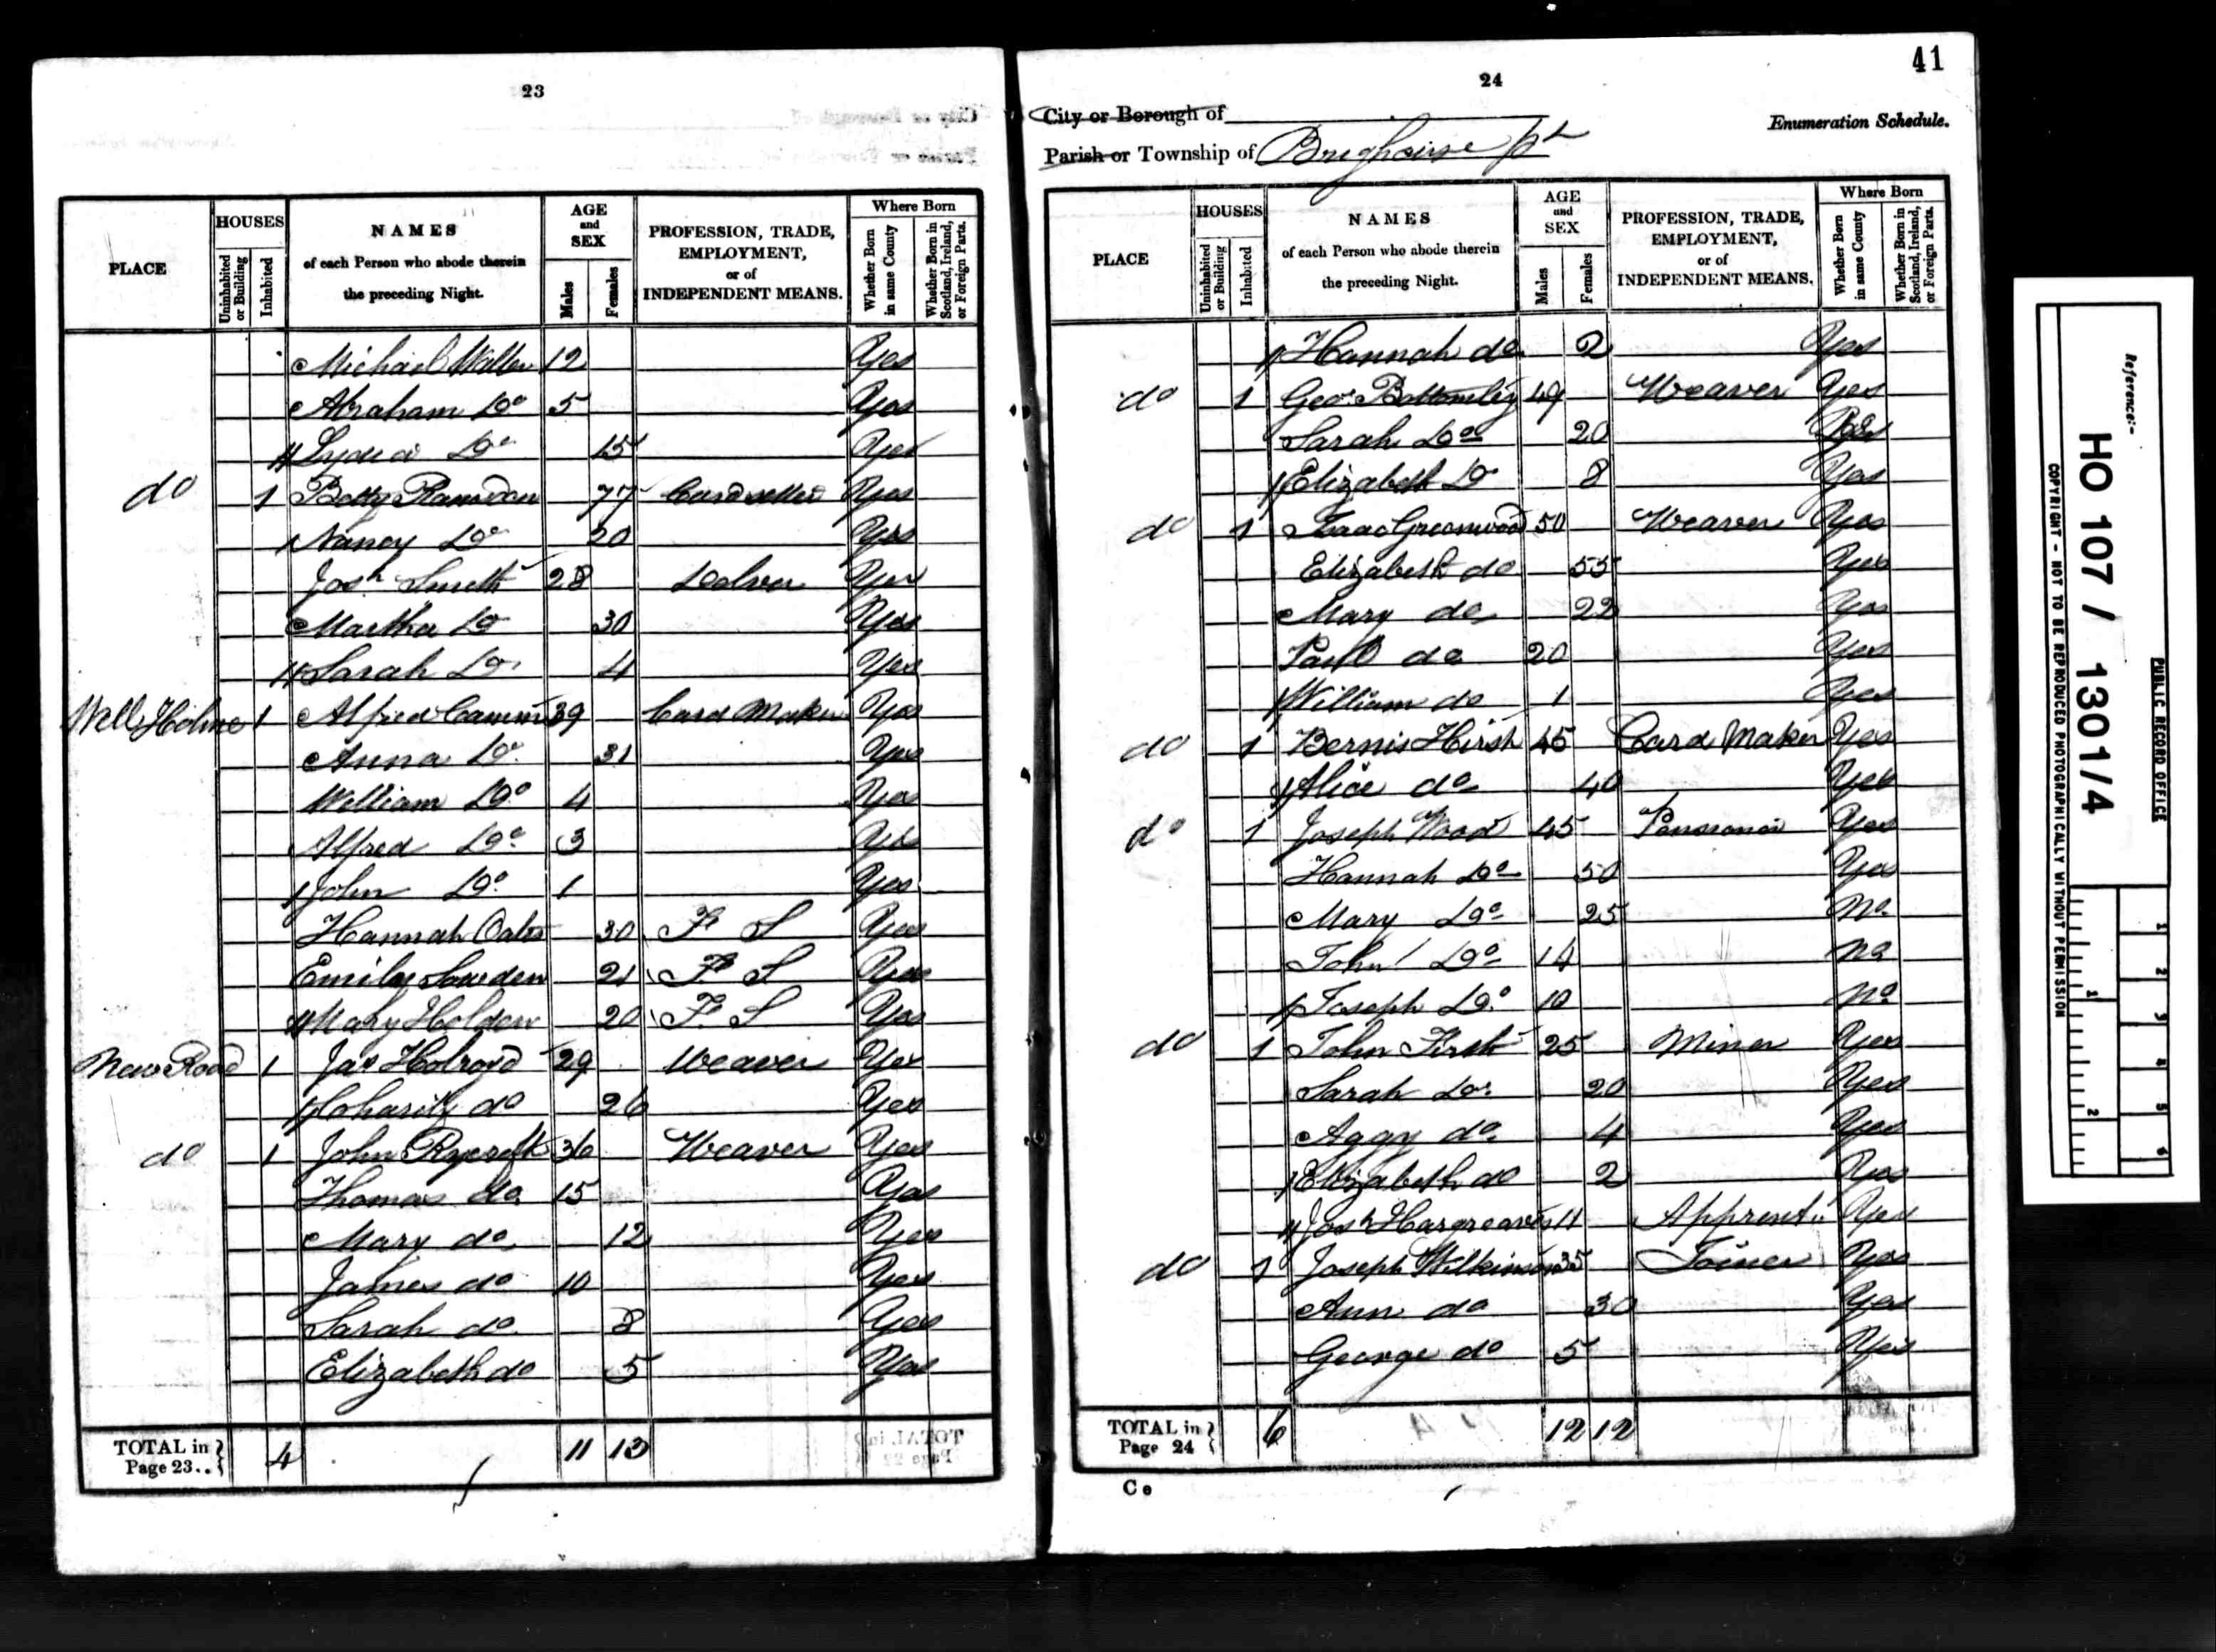 23
PLACE
HOUSES
Uninhabited or Building
Inhabited
NAMES
of each Person who abode therein
the preceding Night.
AGE and SEX
Males
Females
PROFESSION, TRADE, EMPLOYMENT, or of INDEPENDENT MEANS.
Where Born
Whether Born in same County
Whether Born in Scotland, Ireland, or Foreign Parts.
Michael Waller 12 Yes
Abraham Do 5 Yes
Lydia Do 15 Yes
do 1 Betty Ramsden 77 Cardsetter Yes
Nancy Do 20 Yes
Josh Smith 28 Delver Yes
Martha Do 30 Yes
Sarah Do 4 Yes
Well Holme 1 Alfred Camm 39 Card Maker Yes
Anna Do 31 Yes
William Do 4 Yes
Alfred Do 3 Yes
John Do 1 Yes
Hannah Oates 30 F S Yes
Emily Sowden 21 F S Yes
Mary Holden 20 F S Yes
New Road 1 Jas Holroyd 29 Weaver Yes
Charity do 26 Yes
do 1 John Rycroft 36 Weaver Yes
Thomas do 15 Yes
Mary do 12 Yes
James do 10 Yes
Sarah do 8 Yes
Elizabeth do 5 Yes
TOTAL in Page 23.. 4 11 13
24
41
City or Borough of
Enumeration Schedule.
Parish or Township of Brighouse pt
PLACE
HOUSES
Uninhabited or Building
Inhabited
NAMES
of each Person who abode therein
the preceding Night.
AGE and SEX
Males
Females
PROFESSION, TRADE, EMPLOYMENT, or of INDEPENDENT MEANS.
Where Born
Whether Born in same County
Whether Born in Scotland, Ireland, or Foreign Parts.
Hannah do 2 Yes
do 1 Geo. Bottomley 49 Weaver Yes
Sarah Do 20 Yes
Elizabeth Do 8 Yes
do 1 Isaac Greenwood 50 Weaver Yes
Elizabeth do 55 Yes
Mary do 22 Yes
do 20 Yes
William do 1 Yes
do 1 Hirst 45 Card Maker Yes
Alice do 40 Yes
do 1 Joseph Wood 45 Pensioner Yes
Hannah Do 50 Yes
Mary Do 25 No
John Do 14 No
Joseph Do 10 No
do 1 John Firth 25 Miner Yes
Sarah Do 20 Yes
Aggy do 4 Yes
Elizabeth do 2 Yes
Josh Hargreaves 11 Apprent.. Yes
do 1 Joseph Wilkinson 35 Joiner Yes
Ann do 30 Yes
George do 5 Yes
TOTAL in Page 24 6 12 12
C e
PUBLIC RECORD OFFICE
Reference:-
HO 107 / 1301/4
COPYRIGHT - NOT TO BE REPRODUCED PHOTOGRAPHICALLY WITHOUT PERMISSION
1 2 3 4 5 6
1 2